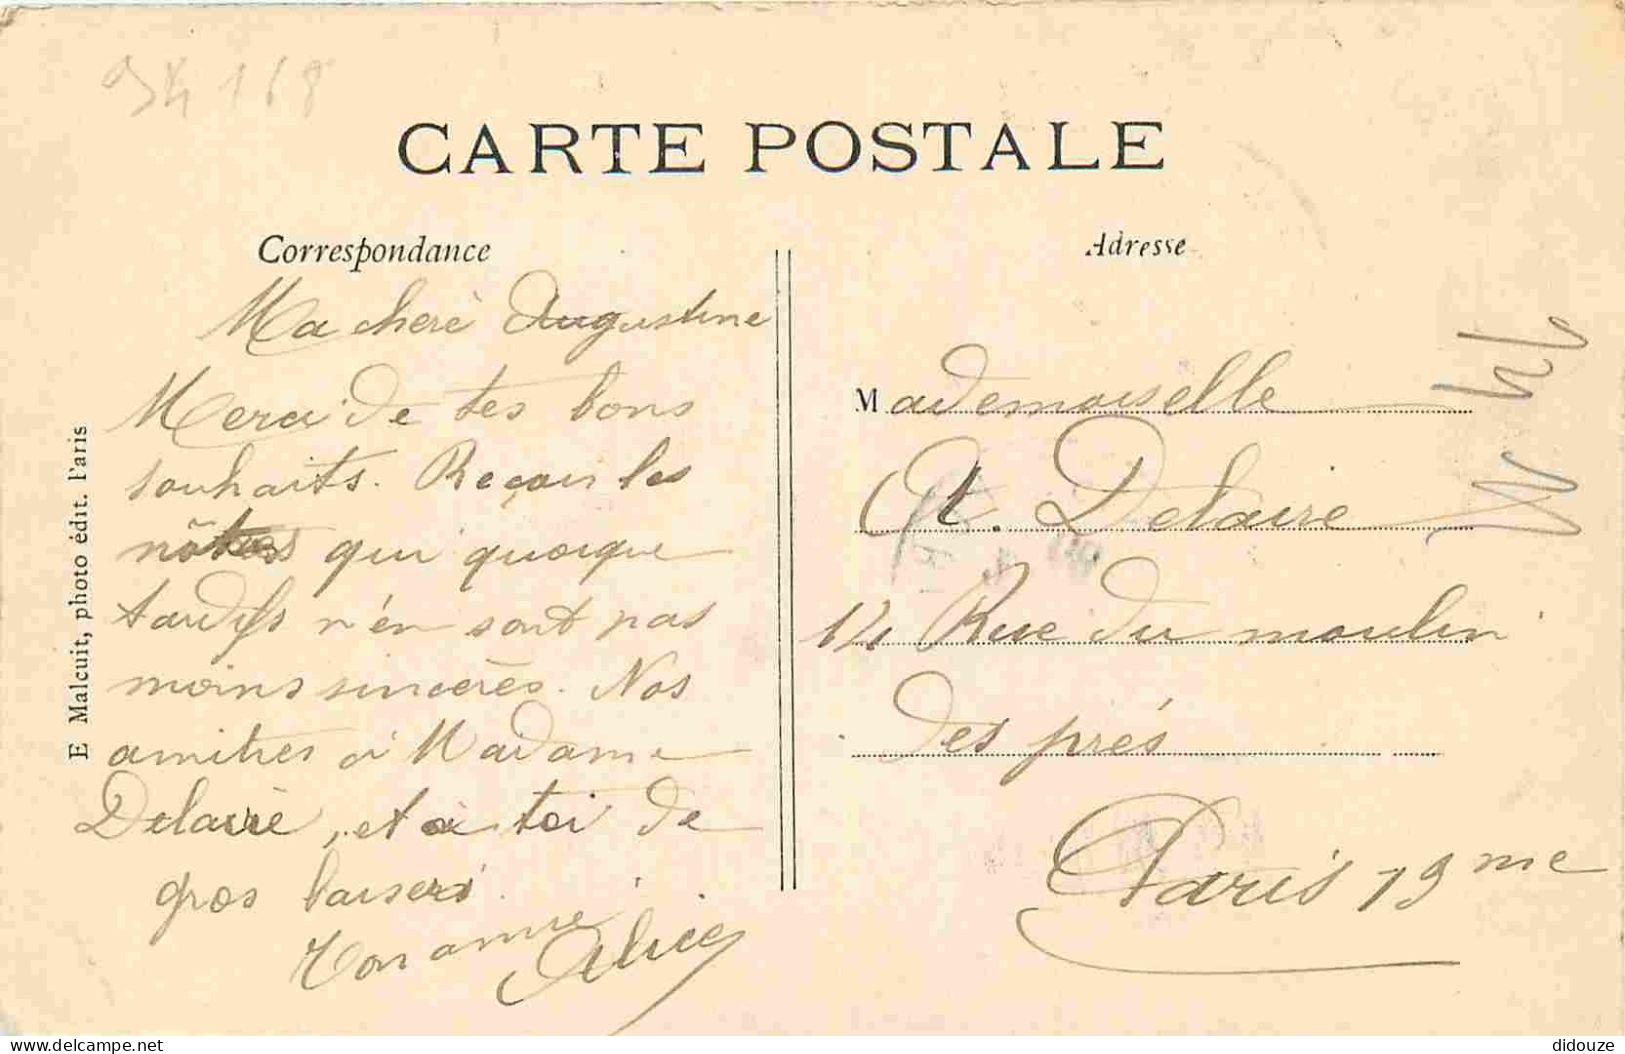 CARTE POSTALE
Correspondance
Ma cherè Augustine
Merci de tes bons
souhaits. Reçois les
nôtres qui quoique
tardifs n'en sont pas
moins sincères. Nos
amitiés à Madame
Delaire, et à toi de
gros baisers
Ton amie Alice
E Malcuit, photo édit. Paris
Adresse
Mademoiselle
A. Delaire
Rue du moulin
des prés
Paris 13me
didouze
delcampe.net